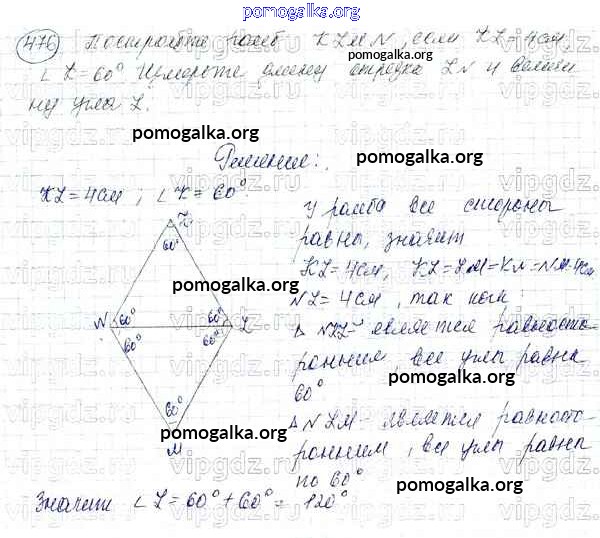 pomogalka.org
476 Постройте ромб KLMN, если KL=4см,
∠K=60° Измерьте длину отрезка LN и величи
ну угла L.
pomogalka.org
Решение:
pomogalka.org
KL=4см; ∠K=60°.
У ромба все стороны
равны, значит
KL=4см, KL=LM=KN=NM=4см
NL=4см, так как
△ NKL является равносто-
ронним, все углы равны
60°
△ NLM является равносто-
ронним, все углы равны
по 60°
K
60°
pomogalka.org
N 60° 60° L
60° 60°
60°
M
pomogalka.org
pomogalka.org
pomogalka.org
pomogalka.org
Значит ∠L=60°+60°=120°
pomogalka.org
vipgdz.ru